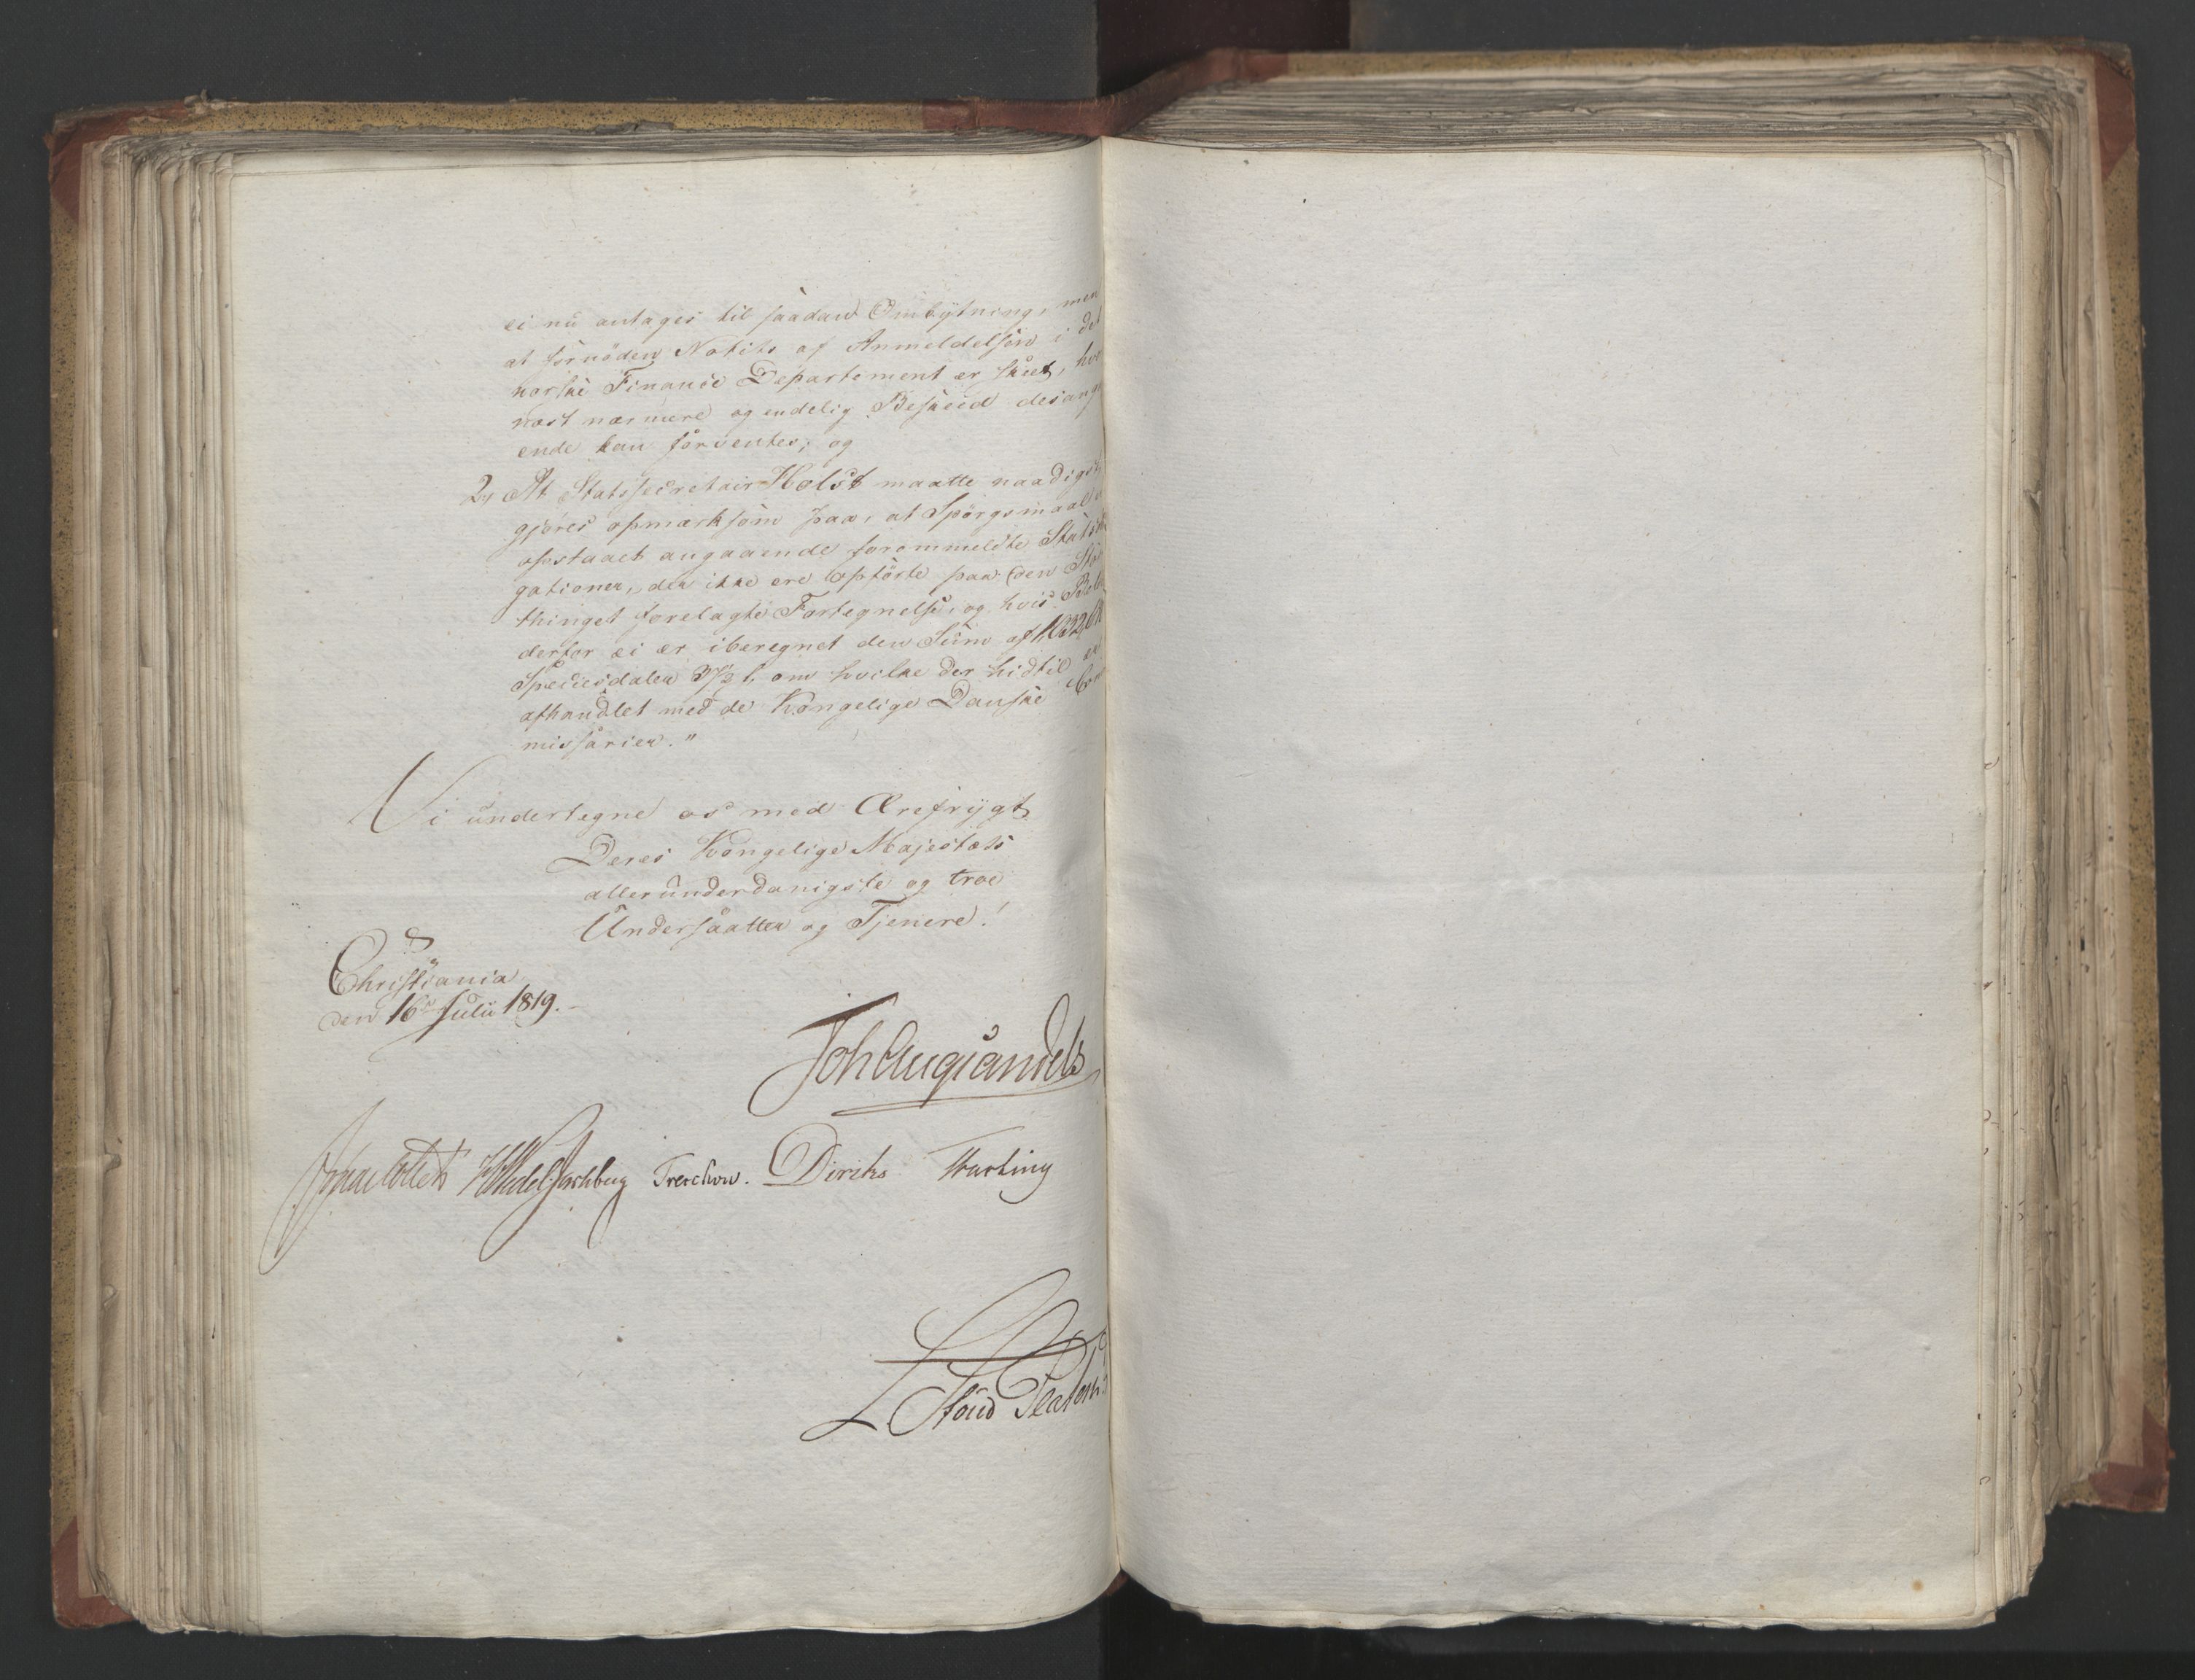 ei nu antages til saadan Ombytning, men
at fornöden Notits af Anmeldelsen i det
norske Finance Departement er skeet, hvor
næst nærmere og endelig Beskeed desang
ende kan forventes; og
2, At Statssecretair Holst maatte naadigst
gjöres opmærksom paa, at Spörgsmaal er
opstaaet angaaende forommeldte Stats
gationer, der ikke ere opförte paa den Stor
thinget forelagte Fortegnelse, og hvis Belöb
derfor ei er iberegnet den Sum af
Speciesdaler om hvilke der hidtil er
afhandlet med de Kongelige Danske Com
missarier."
Vi undertegne os med Ærefrygt
Deres Kongelige Majestæts
allerunderdanigste og troe
Undersaatter og Tjenere!
Christiania
den 16de Julii 1819.
Joh Aug Sandels
Jonas Collett HWedel Jarlsberg Treschow. Diriks Fasting